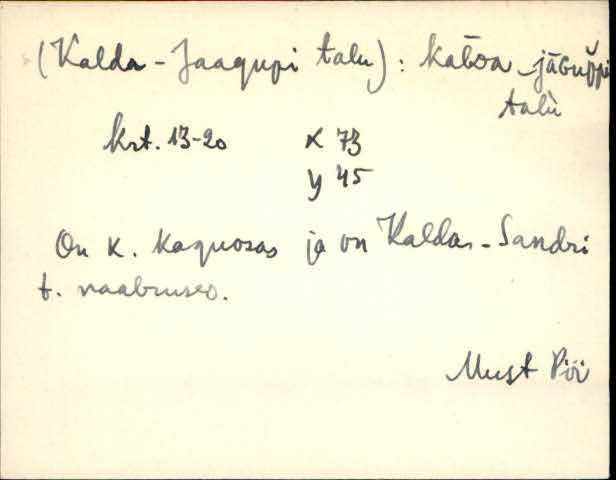 (Kalda-Jaagupi talu): kalda-jāgup̆pi
talù
krt. 13-20 x 73
y 45
On k. kaguosas ja on Kalda-Sandri
t. naabruses.
Must Pöi